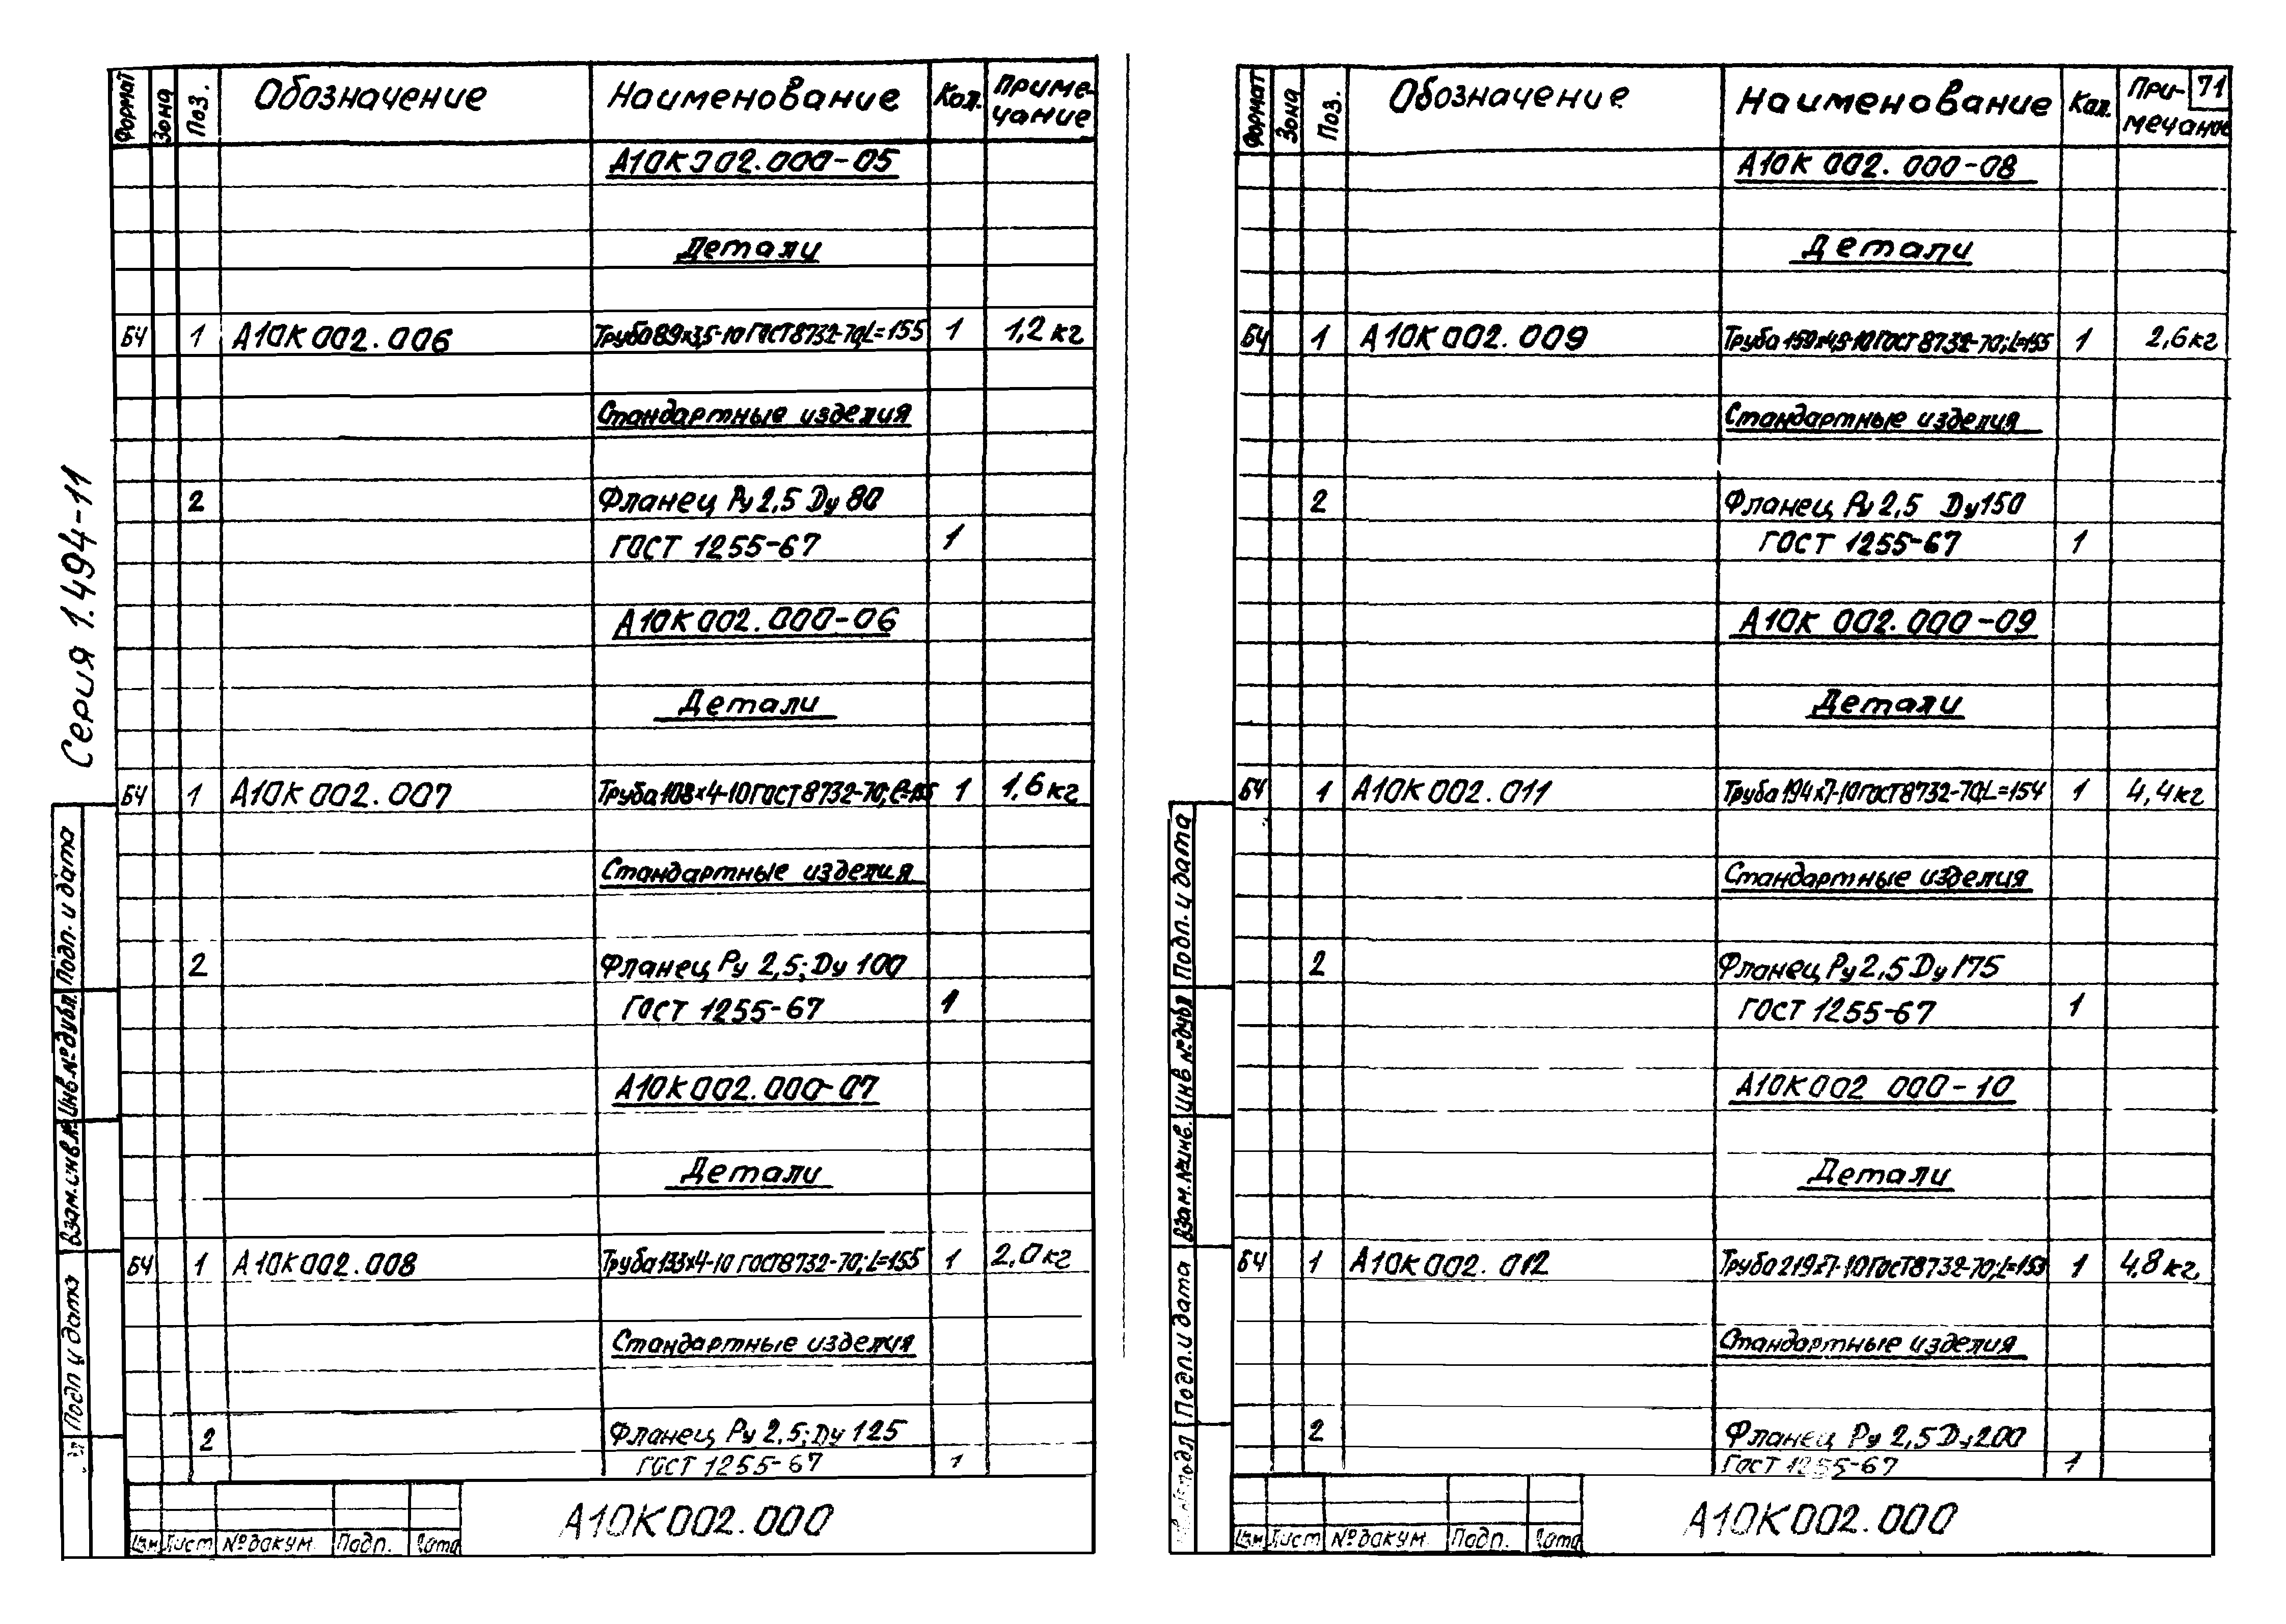 Серия 1.494-11
Формат Зона Поз. Обозначение Наименование Кол. Приме-
чание
А10К002.000-05
Детали
БЧ 1 А10К002.006 Труба 89х3,5-10 ГОСТ 8732-70, L=155 1 1,2 кг
Стандартные изделия
2 Фланец Ру 2,5 Ду 80
ГОСТ 1255-67 1
А10К002.000-06
Детали
БЧ 1 А10К002.007 Труба 108х4-10 ГОСТ 8732-70; ℓ=155 1 1,6 кг
Стандартные изделия
2 Фланец Ру 2,5; Ду 100
ГОСТ 1255-67 1
А10К002.000-07
Детали
БЧ 1 А10К002.008 Труба 133х4-10 ГОСТ 8732-70; L=155 1 2,0 кг
Стандартные изделия
2 Фланец Ру 2,5; Ду 125
ГОСТ 1255-67 1
Подп. и дата
Инв.№ дубл.
Взам.инв.№
Подп и дата
Изм Лист № докум. Подп. Дата
А10К002.000
71
Формат Зона Поз. Обозначение Наименование Кол. При-
мечание
А10К 002.000-08
Детали
БЧ 1 А10К002.009 Труба 159х4,5-10 ГОСТ 8732-70; L=155 1 2,6 кг
Стандартные изделия
2 Фланец Ру 2,5 Ду 150
ГОСТ 1255-67 1
А10К 002.000-09
Детали
БЧ 1 А10К002.011 Труба 194х7-10 ГОСТ 8732-70, L=154 1 4,4 кг
Стандартные изделия
2 Фланец Ру 2,5 Ду 175
ГОСТ 1255-67 1
А10К002 000-10
Детали
БЧ 1 А10К002.012 Труба 219х7-10 ГОСТ 8732-70; L=153 1 4,8 кг
Стандартные изделия
2 Фланец Ру 2,5 Ду 200
ГОСТ 1255-67 1
Подп. и дата
Инв № дубл
Взам.№ инв.
Подп. и дата
подл
Изм Лист № докум. Подп. Дата
А10К002.000